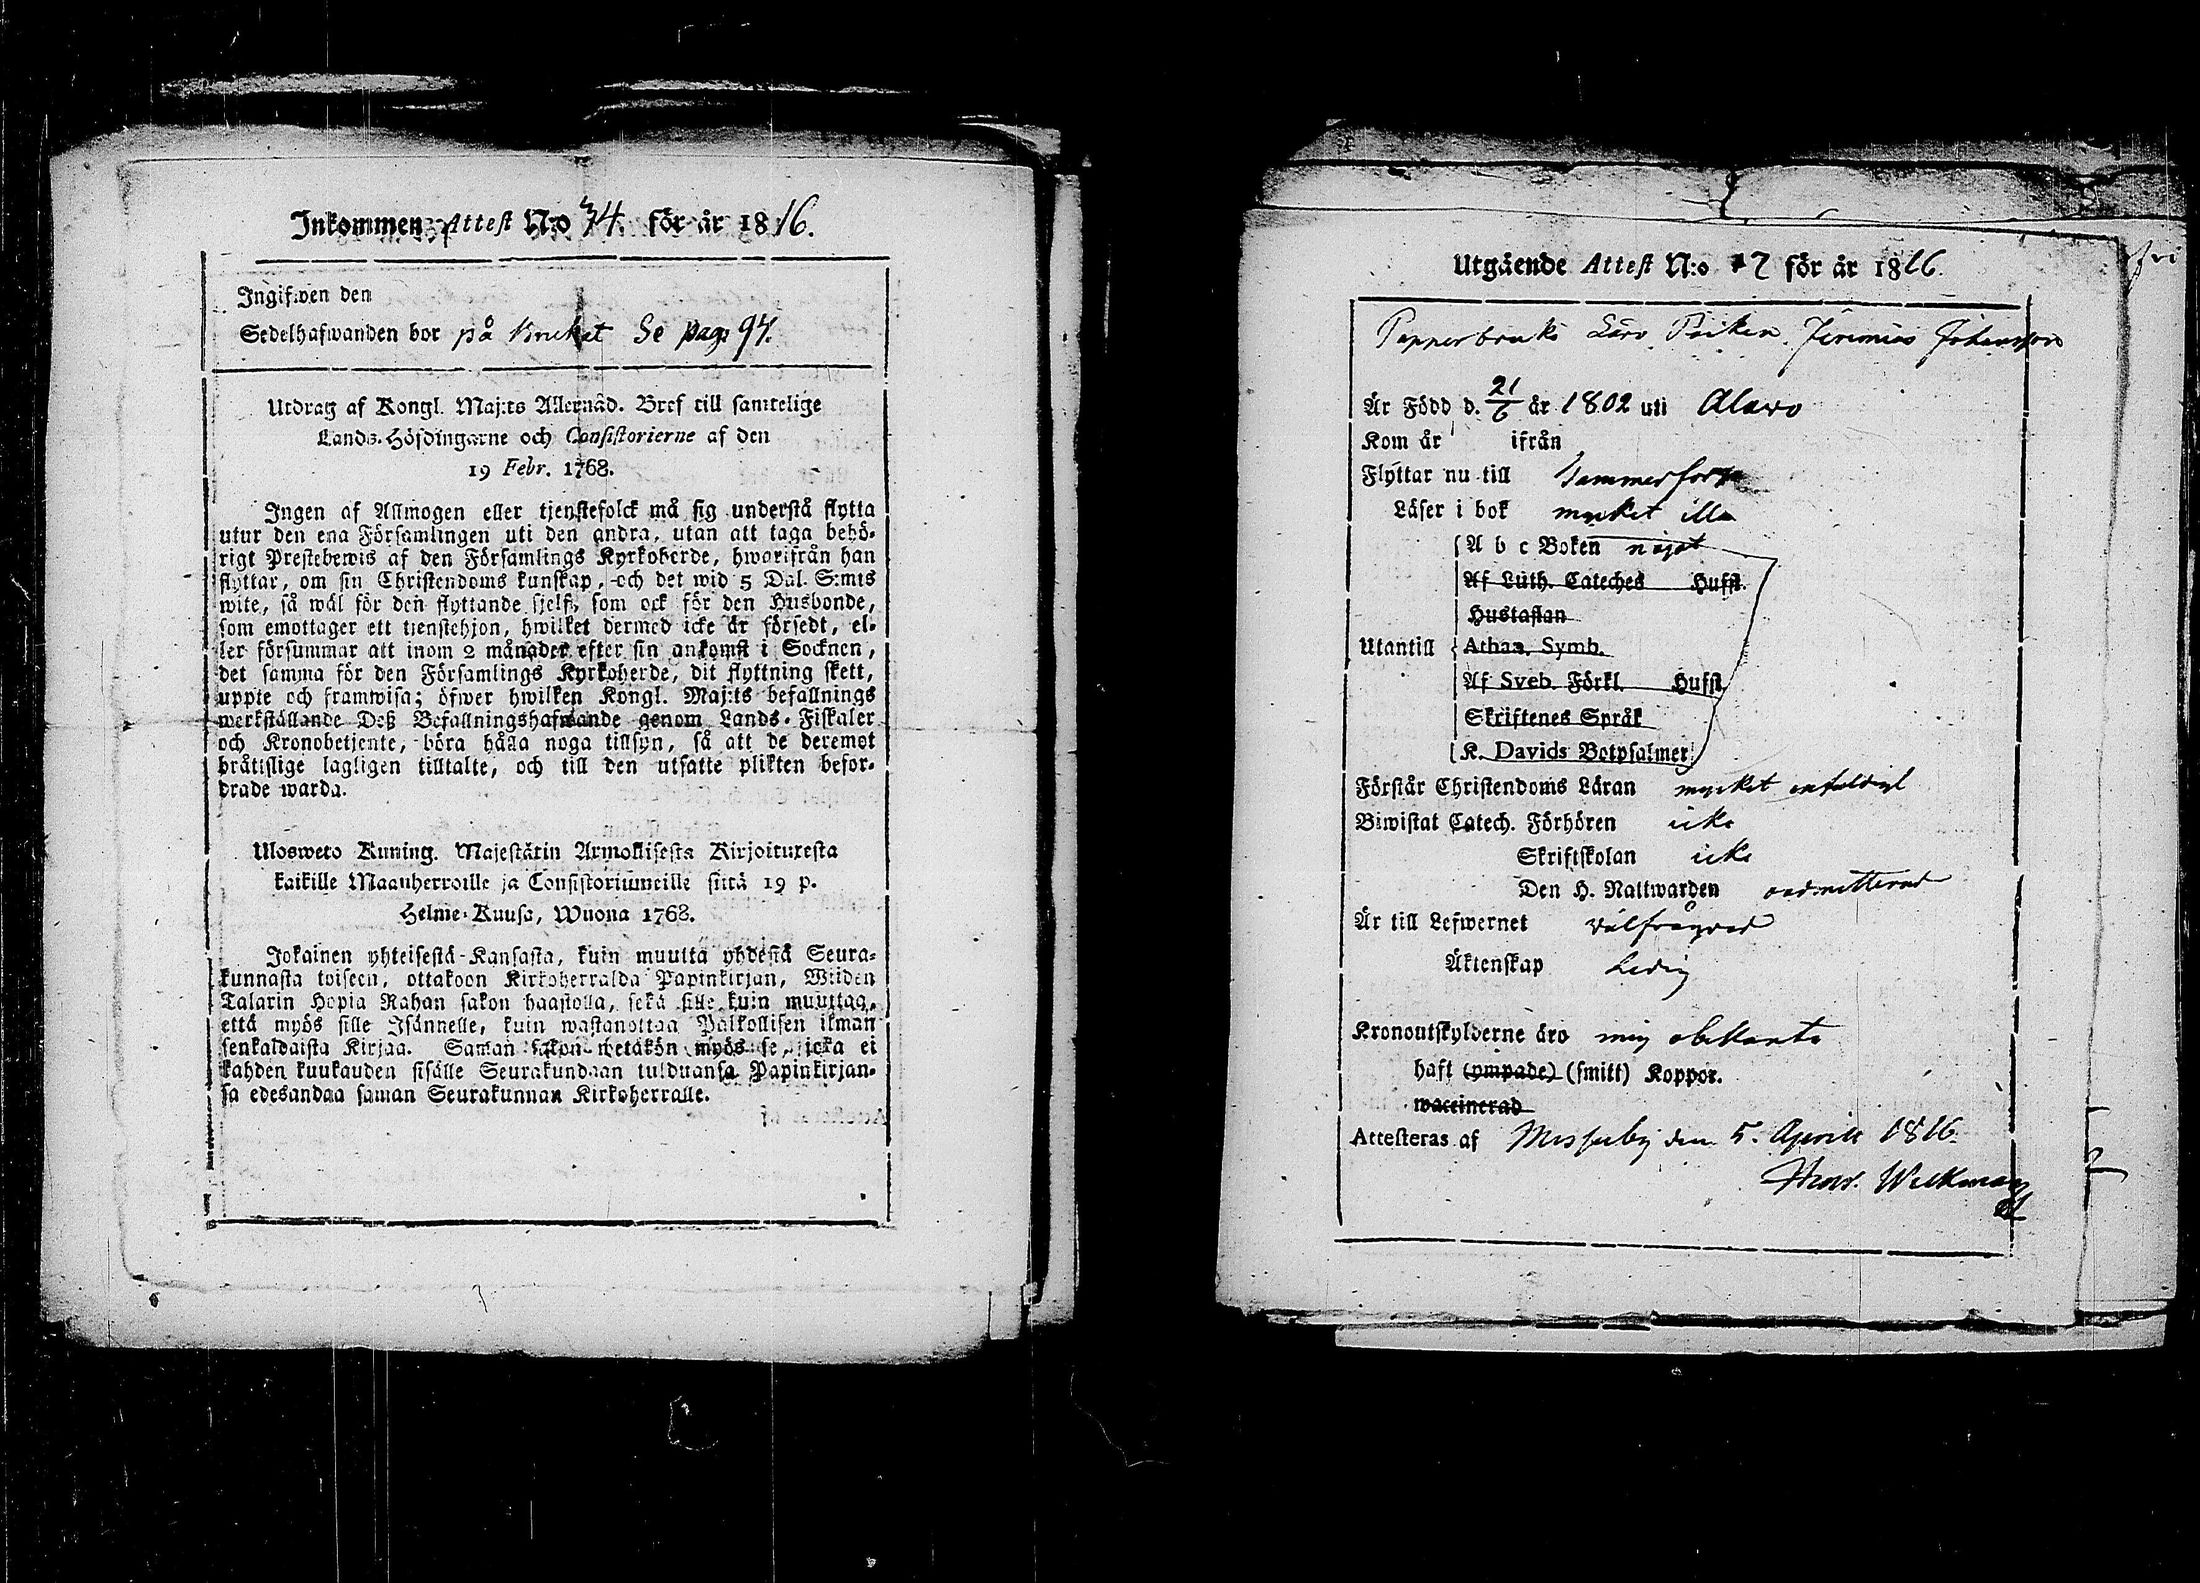 Inkommen Attest N:o 34. för år 1816.
Ingifwen den
Sedelhafwanden bor på Bruket Se pag: 94.
Utdrag af Kongl. Maj:ts Allernåd. Bref till samtelige
Lands-Höfdingarne och Consistorierne af den
19 Febr. 1768.
Ingen af Allmogen eller tjenstefolck må sig understå flytta
utur den ena Församlingen uti den andra, utan att taga behö-
rigt Prestebewis af den Församlings Kyrkoherde, hwarifrån han
flyttar, om sin Christendoms kunskap, och det wid 5 Dal. S:mts
wite, så wäl för den flyttande sjelf, som ock för den Husbonde,
som emottager ett tjenstehjon, hwilket dermed icke är försedt, el-
ler försummar att inom 2 månader efter sin ankomst i Socknen,
det samma för den Församlings Kyrkoherde, dit flyttning skett,
uppte och framwisa; öfwer hwilken Kongl. Maj:ts befallnings
werkställande Deß Befallningshafwande genom Lands-Fiskaler
och Kronobetjente, böra hålla noga tillsyn, så att de deremot
bråtislige lagligen tilltalte, och till den utsatte plikten befor-
drade warda.
Ulosweto Kuning. Majestätin Armollisesta Kirjoituxesta
kaikille Maanherroille ja Consistoriumeille siitä 19 p.
Helme-Kuusa, Wuona 1768.
Jokainen yhteisestä-Kansasta, kuin muutta yhdestä Seura-
kunnasta toiseen, ottakoon Kirkoherralda Papinkirjan, Wiiden
Talarin Hopia Rahan sakon haastolla, sekä sille kuin muuttaa,
että myös sille Isännelle, kuin wastanottaa Palkollisen ilman
senkaldaista Kirjaa. Saman sakon wetäkön myös se, joka ei
kahden kuukauden sisälle Seurakundaan tulduansa Papinkirjan-
sa edesandaa saman Seurakunnan Kirkoherralle.
Utgående Attest N:o 17 för år 1816.
Papperbruks Läro Poiken Jeremias Johansson
Är Född d. 21/6 år 1802 uti Alavo
Kom år ifrån
Flyttar nu till Tammerfors
Läser i bok mycket illa
A b c Boken något
Af Luth. Cateches Hufst.
Hustaflan
Utantill Athan. Symb.
Af Sveb. Förkl. Hufst.
Skriftenes Språk
K. Davids Botpsalmer
Förstår Christendoms Läran mycket enfaldigt
Biwistat Catech. Förhören icke
Skriftskolan icke
Den H. Nattwarden oadmitterad
Är till Lefwernet välfrägdad
Äktenskap Ledig
Kronoutskylderne äro mig obekanta
haft (ympade) (smitt) Koppor.
waccinerad
Attesteras af Messuby den 5. Aprill 1816.